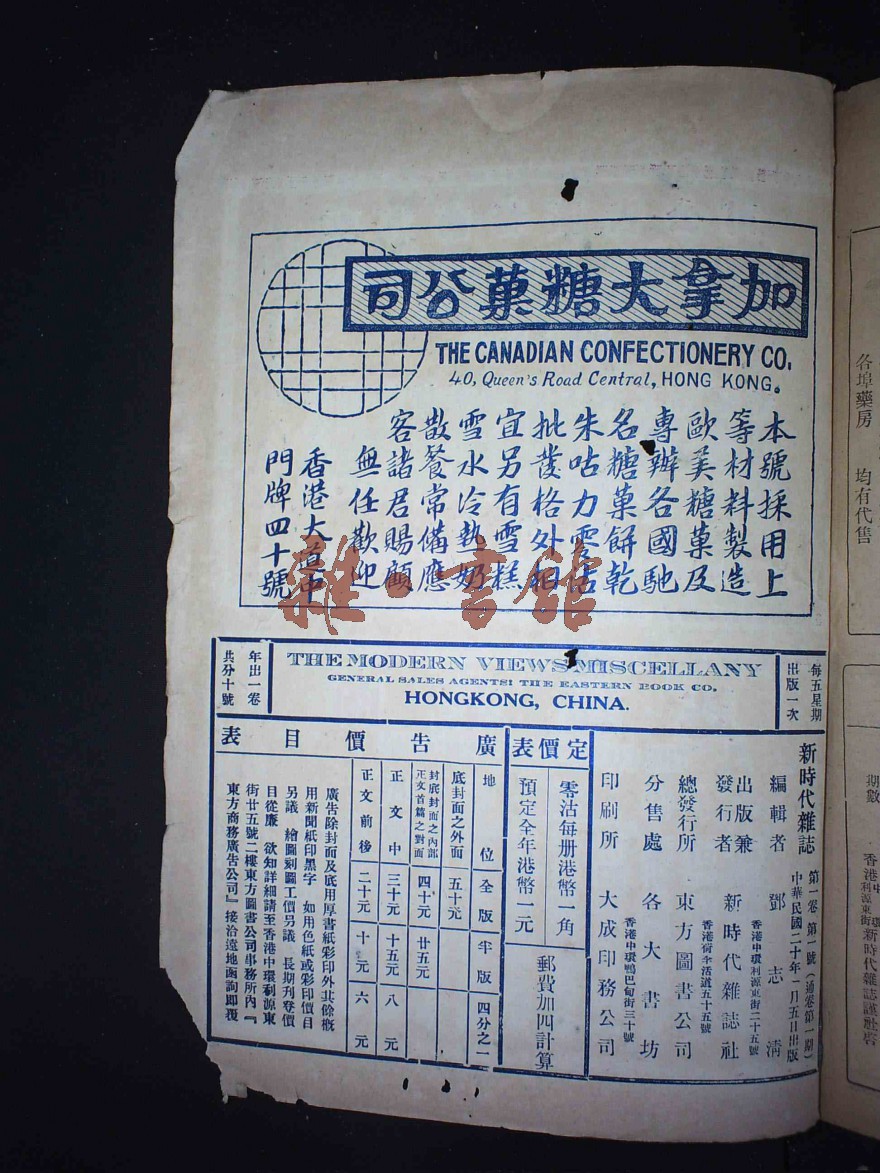 加拿大糖菓公司
THE CANADIAN CONFECTIONERY CO.
40, Queen's Road Central, HONG KONG.
本號採用上
等材料製造
歐美糖菓及
專辦各國馳
名糖菓餅乾
朱咕力零沽
批發格外相
宜另有雪糕
雪水冷熱奶
散餐常備應
客諸君賜顧
無任歡迎
香港大道中
門牌四十號
雜·書舘
每五星期
出版一次
THE MODERN VIEWS MISCELLANY
GENERAL SALES AGENTS: THE EASTERN BOOK CO.
HONGKONG, CHINA.
年出一卷
共分十號
新時代雜誌
第一卷 第一號（通卷第一期）
中華民國二十年一月五日出版
編輯者 鄧志清
香港中環利源東街二十五號
出版兼
發行者 新時代雜誌社
香港荷李活道五十五號
總發行所 東方圖書公司
分售處 各大書坊
香港中環鴨巴甸街三十號
印刷所 大成印務公司
定價表
零沽每册港幣一角
預定全年港幣一元
郵費加四計算
廣告價目表
地位 全版 半版 四分之一
底封面之外面 五十元
封底封面之內部
正文首篇之對面 四十元 廿五元
正文中 三十元 十五元 八元
正文前後 二十元 十元 六元
廣告除封面及底用厚書紙彩印外其餘概
用新聞紙印黑字 如用色紙或彩印價目
另議 繪圖刻圖工價另議 長期刊卷價
目從廉 欲知詳細請至香港中環利源東
街廿五號二樓東方圖書公司事務所內『
東方商務廣告公司』接洽遠地函詢即覆
各埠藥房 均有代售
期數
香港中環
利源東街
新時代雜誌謹社啓